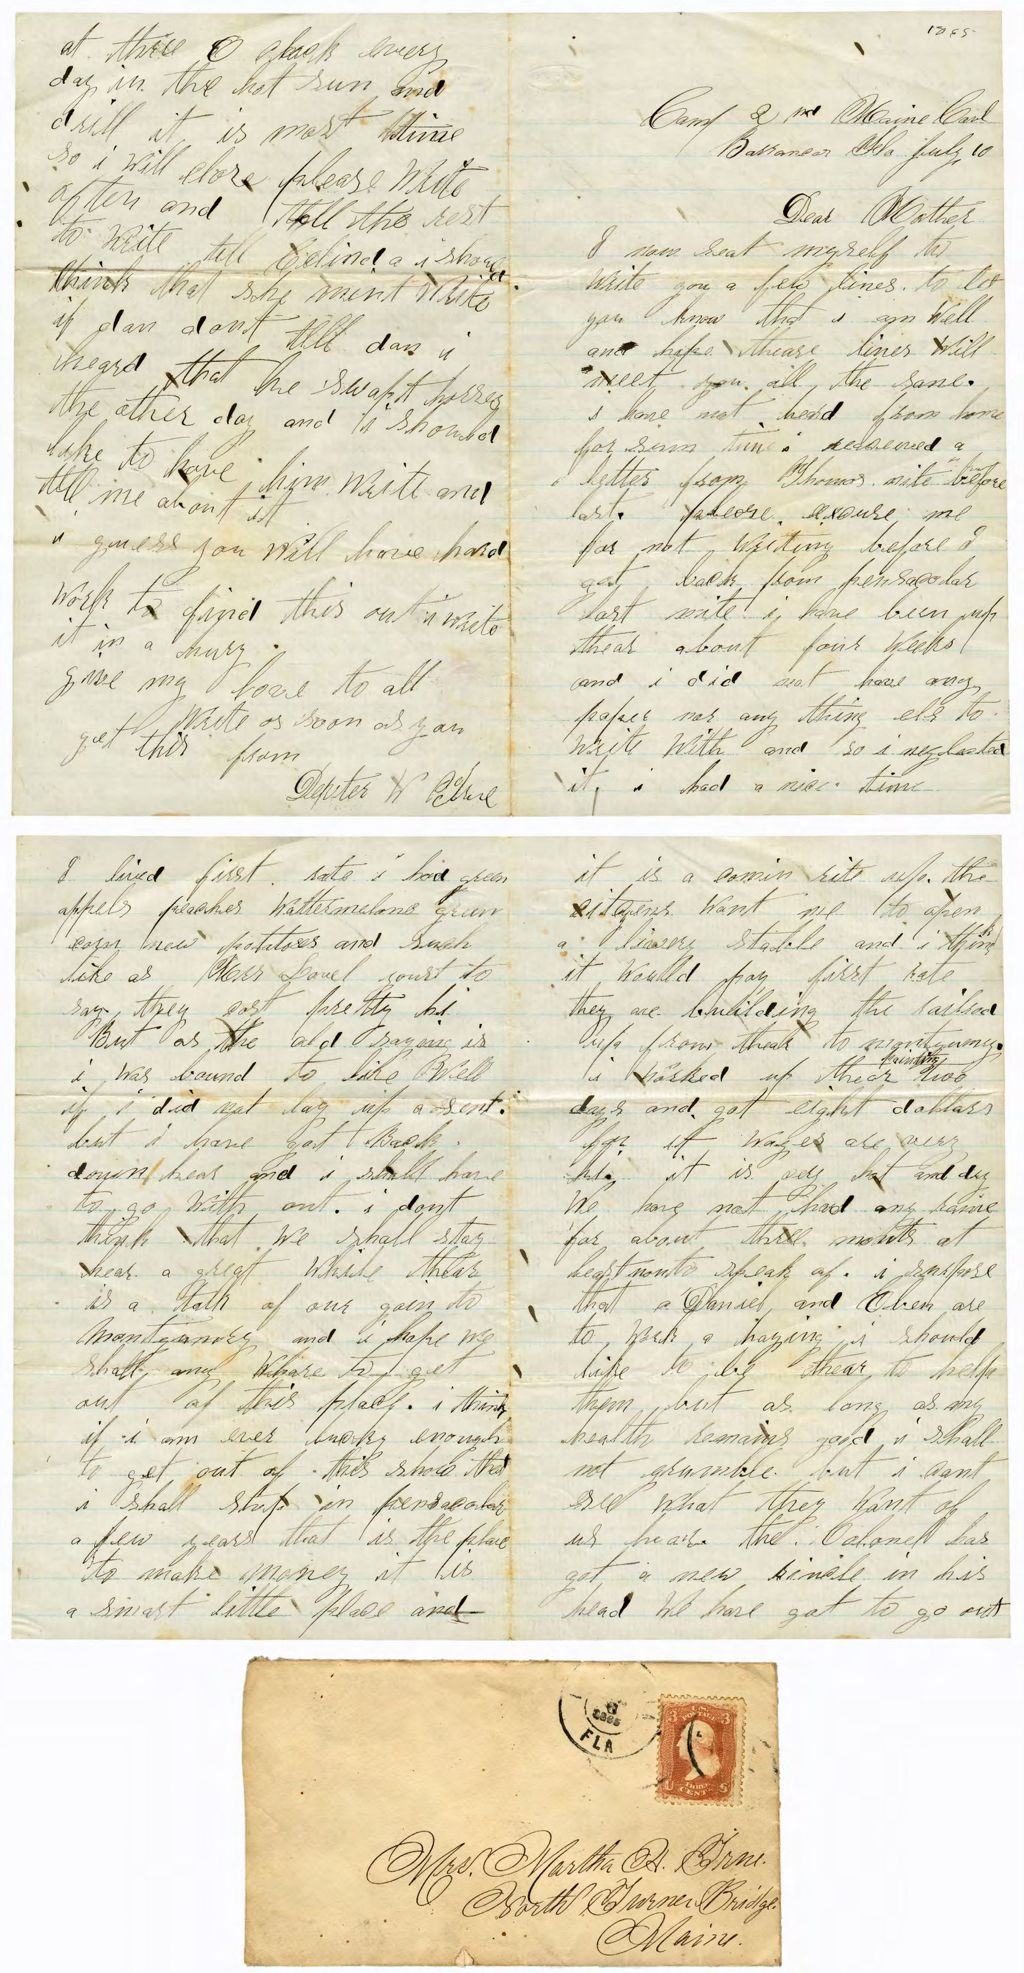 1865
Camp 2nd Maine Cavl
Barrancas Fla July 10
Dear Mother
I now seat myself to
write you a few lines. to let
you know that i am well
and hope thease lines will
meet you all the same.
i have not heard from home
for sum time i received a
letter from Thomas nite before
last. please excuse me
for not writing before I
got back from pensacolar
last nite i have been up
thear about four weeks
and i did not have any
paper nor any thing els to
write with and so i neglected
it, i had a nice time
I lived first rate i had green
appels peaches wattermelons green
corn new potatoes and such
like as
say they cost pretty hi
But as the old saying is
i was bound to live Well
if i did not lay up a sent.
but i have got back
down hear and i shall have
to go with out. i dont
think that we shall stay
hear a great while thear
is a talk of our goin to
Montgumrey and i hope we
shall any whare to get
out of this place. i think
if i am ever lucky enough
to get out of this show that
i shall stop in pensacolar
a few years that is the place
to make money it is
a smart little place and
it is a comin rite up. the
citizens want me to open
a livery stable and i think
it would pay first rate
they are building the railrod
up from thear to montgumry.
i worked up thear painting two
days and got eight dollars
for it wages are very
hi. it is very hot and dry
We have not had any raine
for about three months at
least none to speak of. i supose
that a Daniel and Oben are
to work a haying i should
like to be thear to help
them but as long as my
health remains good i shall
not grumble but i cant
see what they want of
us hear. the Colonel has
got a new rinkle in his
head We have got to go out
at three O clock every
day in the hot sun and
drill it is most time
so i will close please write
often and tell the rest
to write tell Belinda i should
think that she mint write
if dan dont tell dan i
heard that he swapt horses
the other day and i should
like to have him write and
tell me about it
i guess you will have hard
work to find this out i write
it in a hury.
give my love to all
write as soon as you
get this from
Depster W
FLA
U.S. POSTAGE
3 3
THREE CENTS
U S
Mrs. Martha A. Irne.
North Turner Bridge.
Maine.